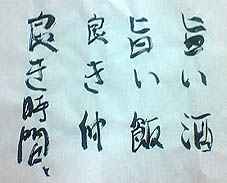 旨い酒
旨い飯
良き仲
良き時間を